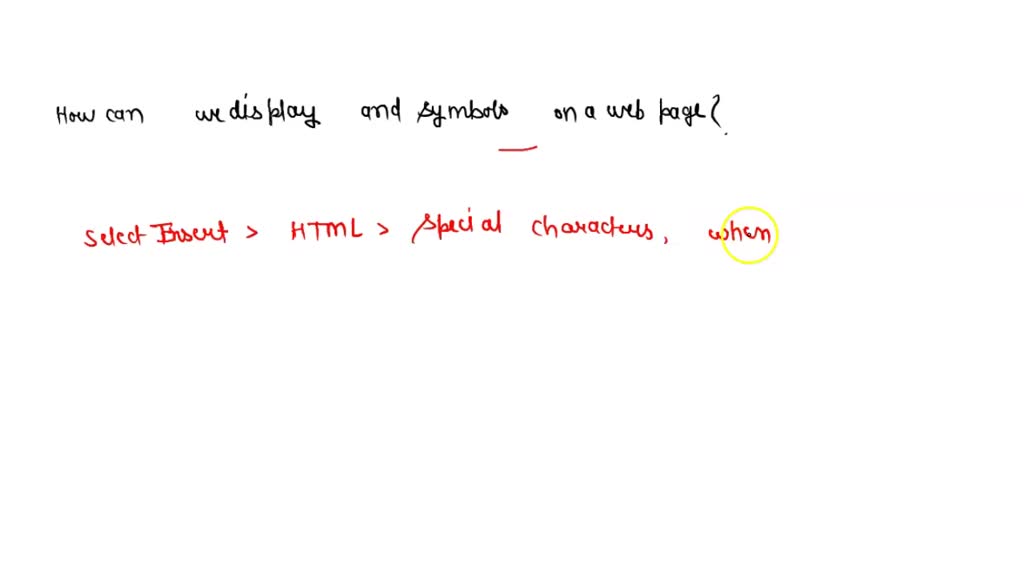 How can we display and symbols on a web page?
Select Insert > HTML > Special characters, when